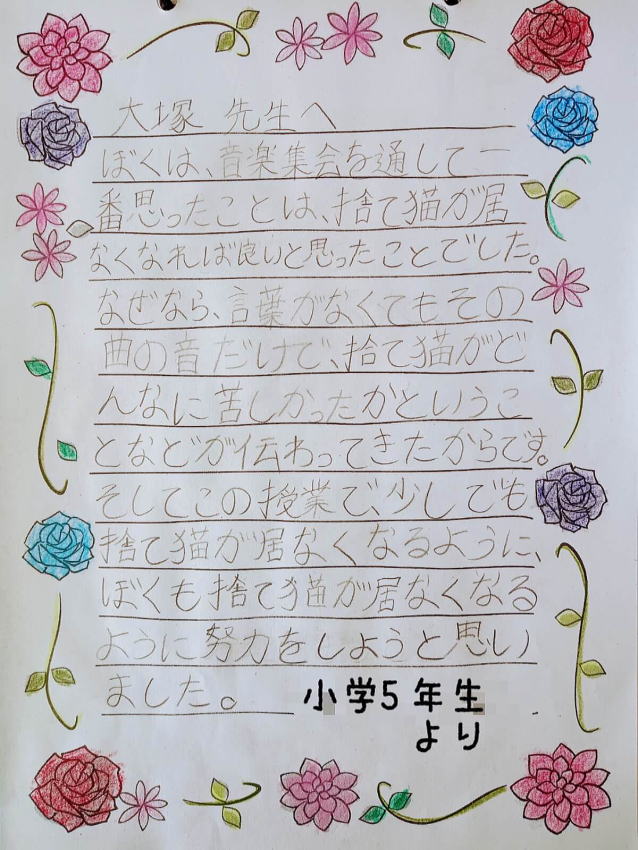 大塚 先生へ
ぼくは、音楽集会を通して一
番思ったことは、捨て猫が居
なくなれば良いと思ったことでした。
なぜなら、言葉がなくてもその
曲の音だけで、捨て猫がど
んなに苦しかったかというこ
となどが伝わってきたからです。
そしてこの授業で、少しでも
捨て猫が居なくなるように、
ぼくも捨て猫が居なくなる
ように努力をしようと思い
ました。 小学5年生
より